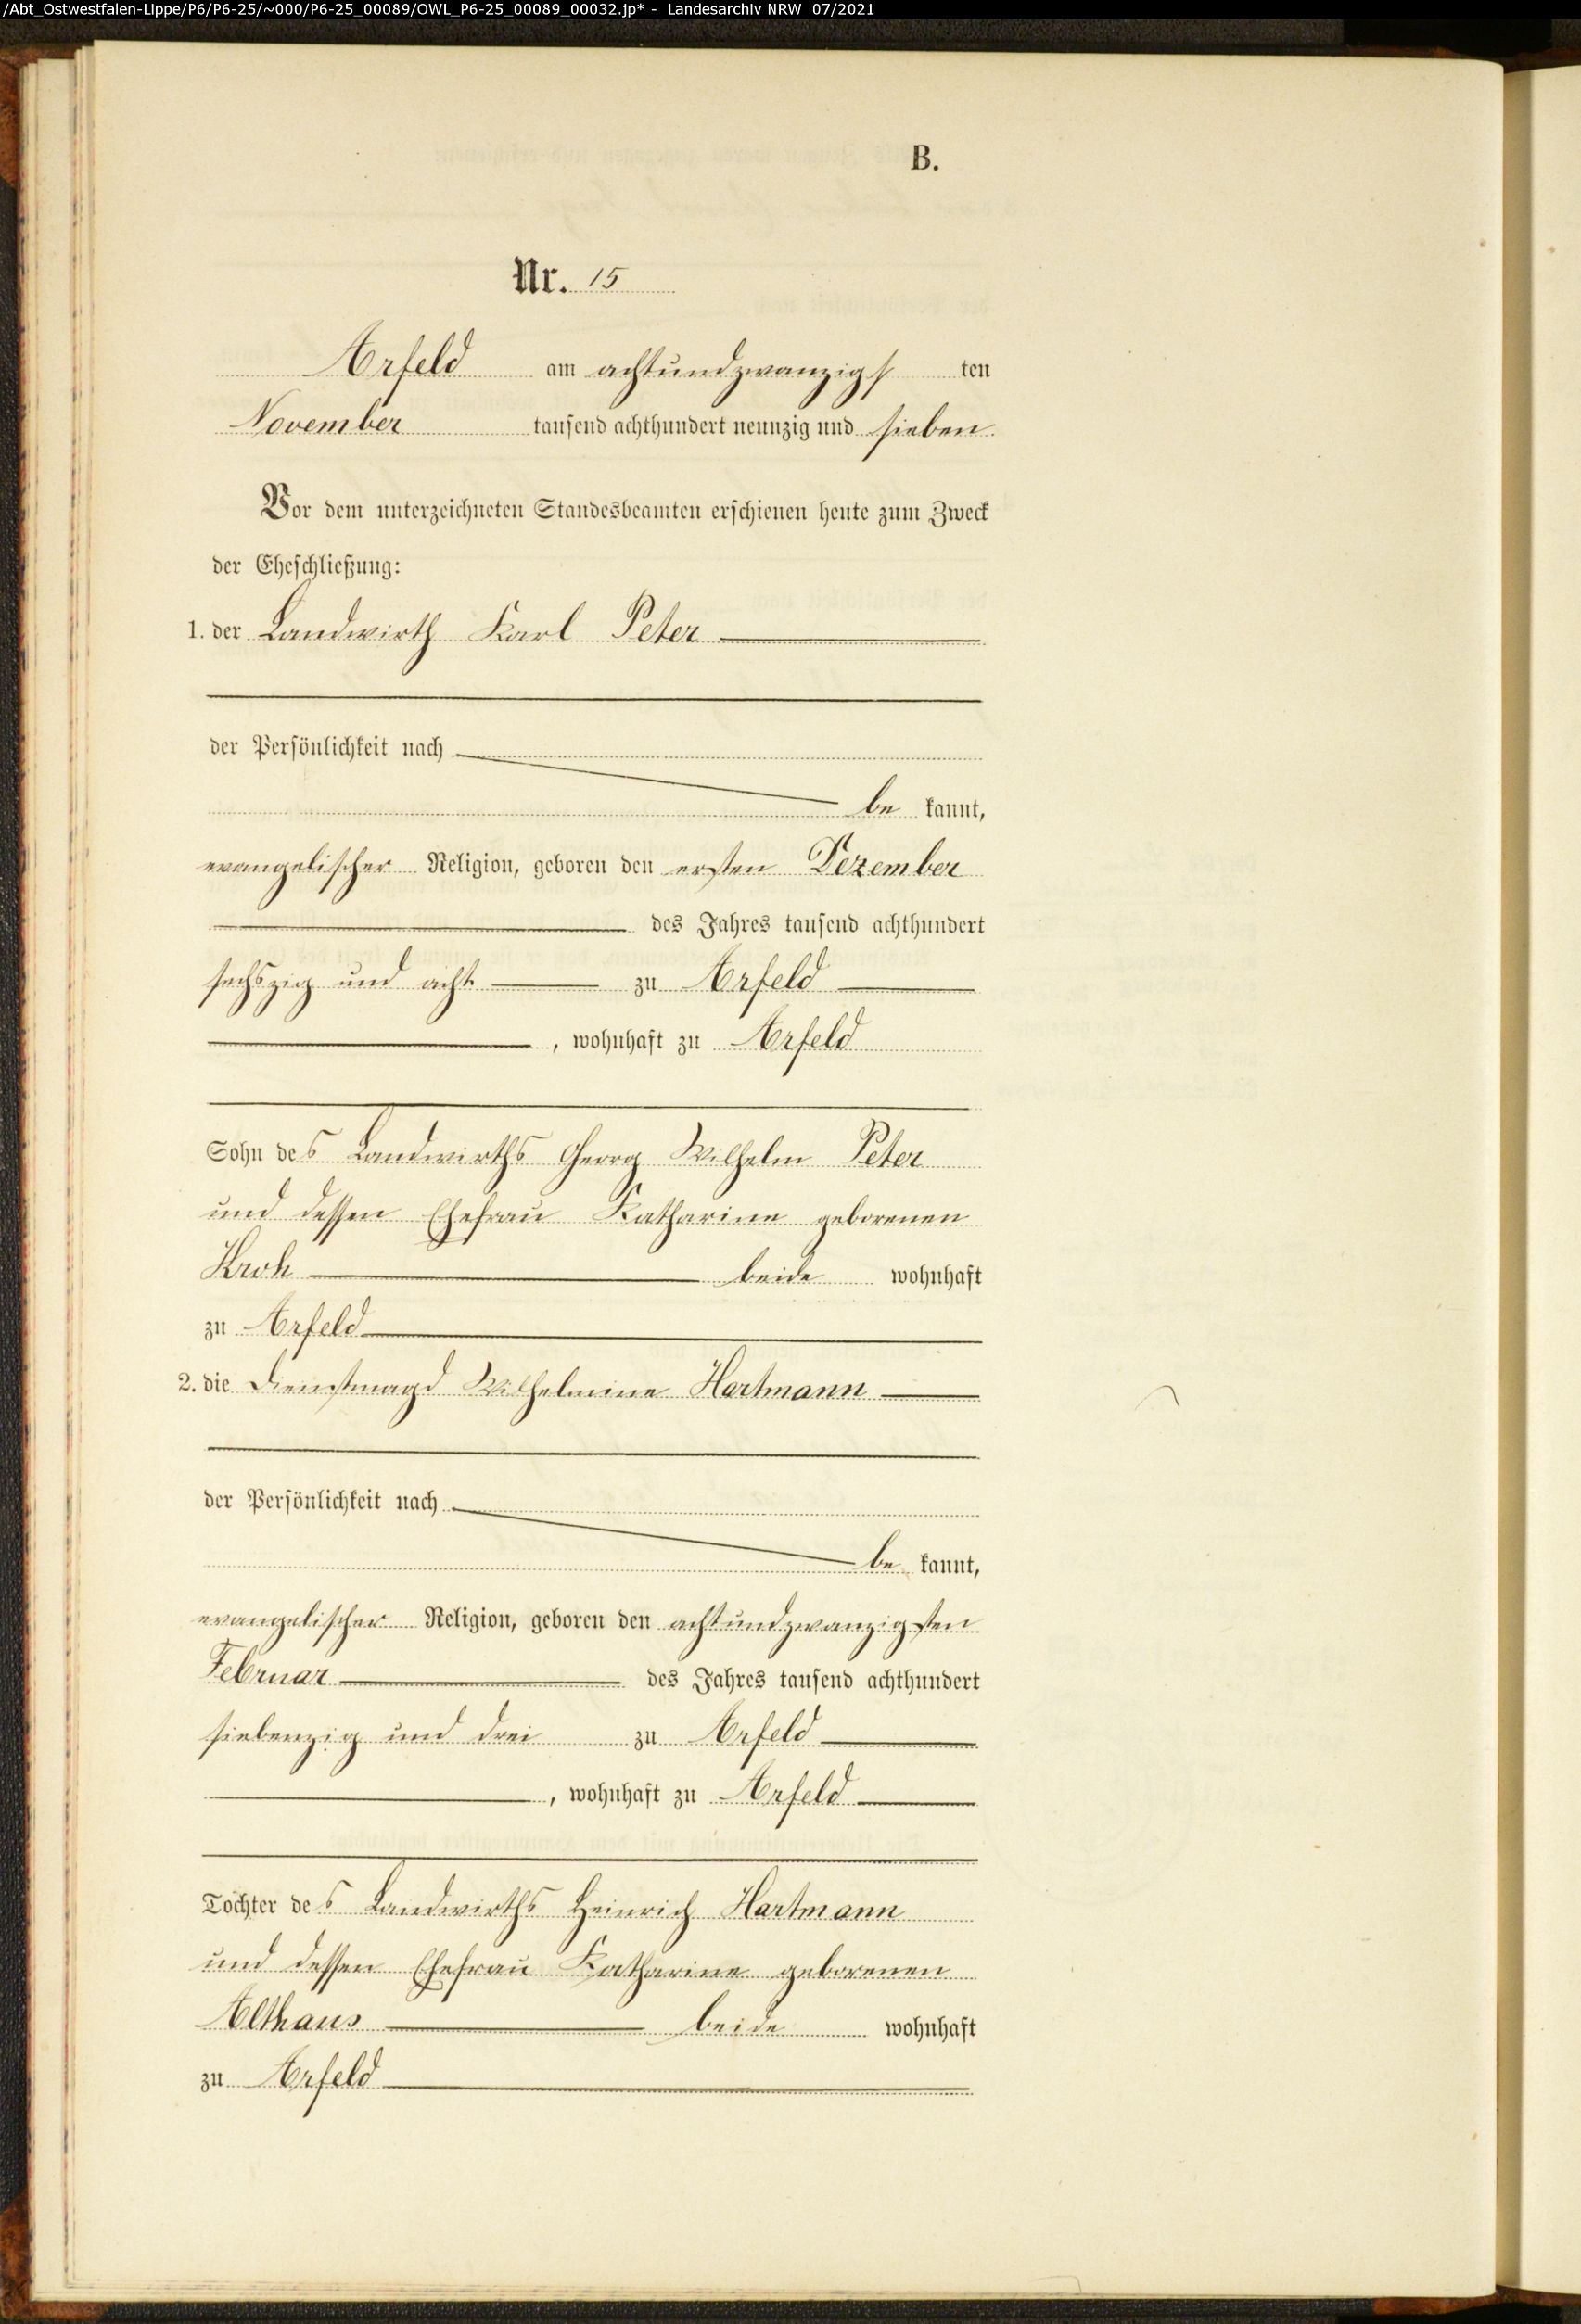 /Abt_Ostwestfalen-Lippe/P6/P6-25/~000/P6-25_00089/OWL_P6-25_00089_00032.jp* - Landesarchiv NRW 07/2021
B.
Nr. 15
Arfeld am achtundzwanzigs ten
November tausend achthundert neunzig und sieben.
Vor dem unterzeichneten Standesbeamten erschienen heute zum Zweck
der Eheschließung:
1. der Landwirth Karl Peter
der Persönlichkeit nach
be kannt,
evangelischer Religion, geboren den ersten Dezember
des Jahres tausend achthundert
sechszig und acht zu Arfeld
, wohnhaft zu Arfeld
Sohn des Landwirths Georg Wilhelm Peter
und dessen Ehefrau Katharine geborenen
Kroh beide wohnhaft
zu Arfeld
2. die Dienstmagd Wilhelmine Hartmann
der Persönlichkeit nach
be kannt,
evangelischer Religion, geboren den achtundzwanzigsten
Februar des Jahres tausend achthundert
siebenzig und drei zu Arfeld
, wohnhaft zu Arfeld
Tochter des Landwirths Heinrich Hartmann
und dessen Ehefrau Katharine geborenen
Althaus beide wohnhaft
zu Arfeld